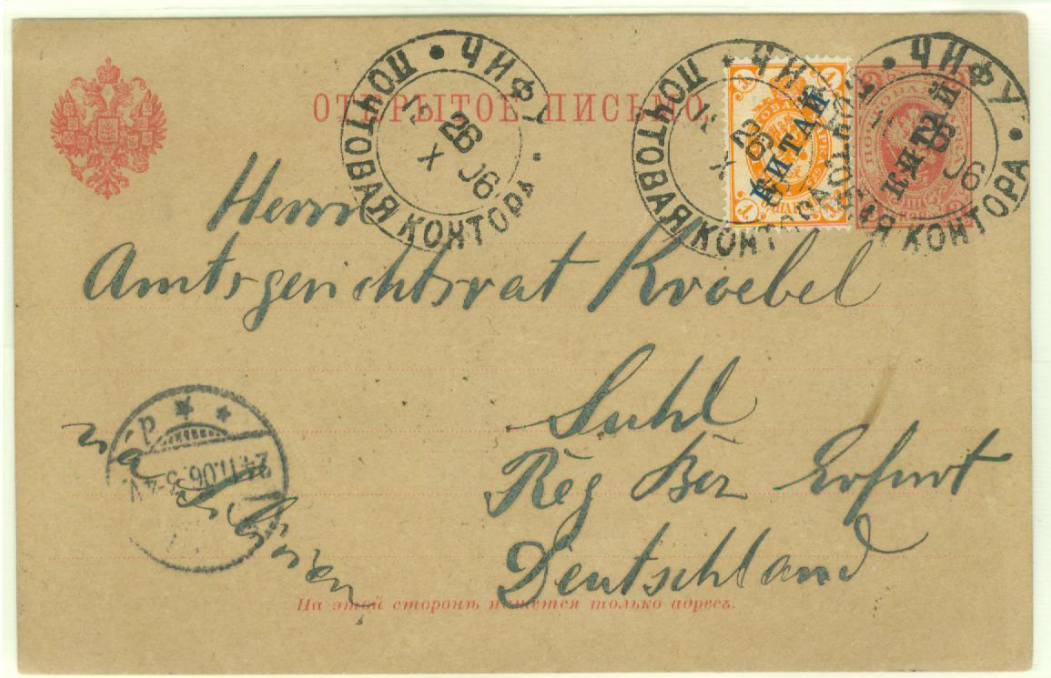 ОТКРЫТОЕ ПИСЬМО.
ЧИФУ
ПОЧТОВАЯ КОНТОРА
26
X 06
ЧИФУ
ПОЧТОВАЯ КОНТОРА
X
1 1
КИТАЙ
1 1
ЧИФУ
КОНТОРА
06
КИТАЙ
Herrn
Amtsgerichtsrat Kroebel
Suhl
Reg Bez Erfurt
Deutschland
24.11.06
На этой сторонѣ пишется только адресъ.